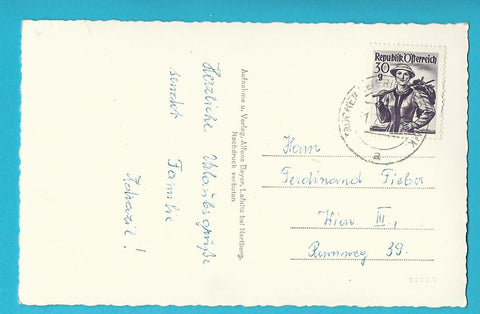 Herzliche Urlaubsgrüße
sendet Familie
!
Aufnahme u. Verlag, Alfons Bayer, Lafnitz bei Hartberg.
Nachdruck verboten
Republik Österreich
30
g
a
Herrn
Ferdinand Fieber
Wien III,
Rennweg 39.